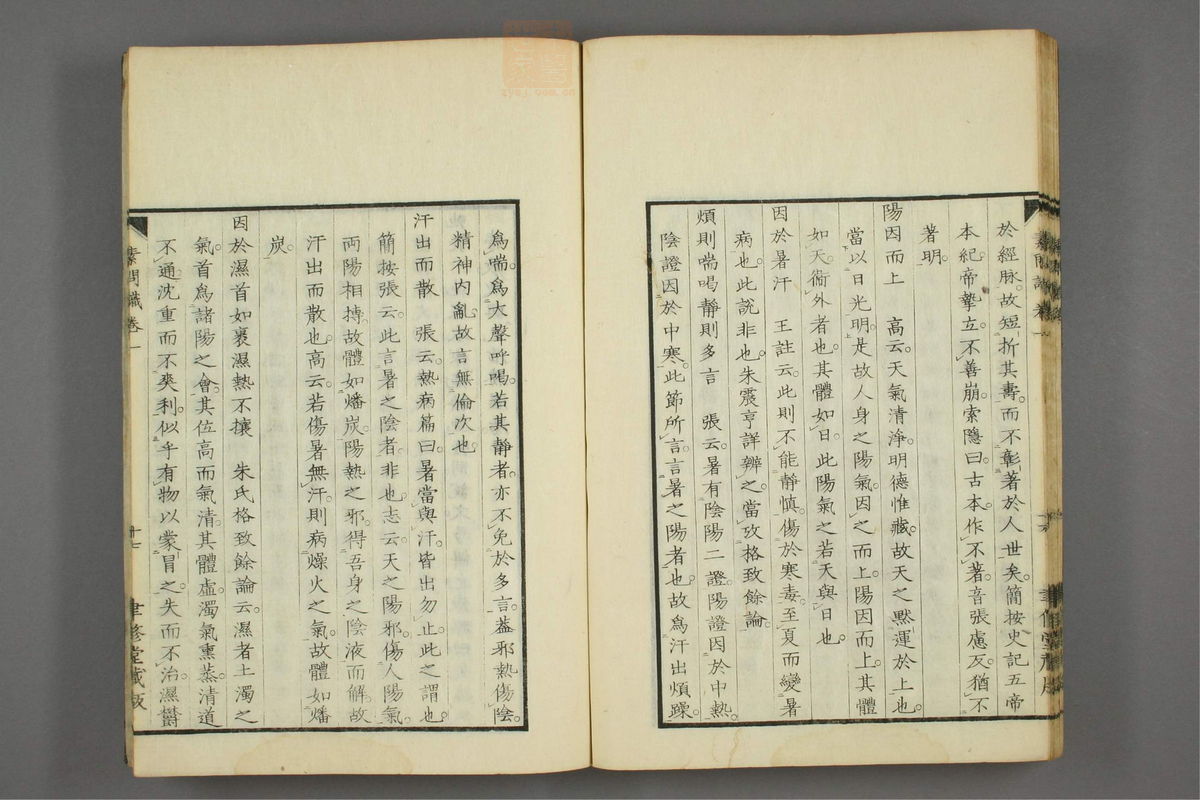 於經脉。故短折其壽。而不彰著於人世矣。簡按史記五帝
本紀。帝摯立。不善崩。索隱曰。古本作不著。音張慮反。猶不
著明。
陽因而上　高云。天氣清淨。明德惟藏。故天之默運於上也。
當以日光明。是故人身之陽氣。因之而上。陽因而上。其體
如天。衞外者也。其體如日。此陽氣之若天與日也。
因於暑汗　王註云。此則不能靜慎。傷於寒毒。至夏而變暑
病也。此說非也。朱震亨詳辨之。當攷格致餘論。
煩則喘喝靜則多言　張云。暑有陰陽二證。陽證因於中熱。
陰證因於中寒。此節所言。言暑之陽者也。故爲汗出煩躁。
爲喘。爲大聲呼喝。若其靜者。亦不免於多言。葢邪熱傷陰。
精神內亂。故言無倫次也。
汗出而散　張云。熱病篇曰。暑當與汗皆出勿止。此之謂也。
簡按張云。此言暑之陰者。非也。志云。天之陽邪。傷人陽氣。
兩陽相搏。故體如燔炭。陽熱之邪。得吾身之陰液而解。故
汗出而散也。高云。若傷暑無汗。則病燥火之氣。故體如燔
炭。
因於濕首如裹濕熱不攘　朱氏格致餘論云。濕者土濁之
氣。首爲諸陽之會。其位高而氣清。其體虛。濁氣熏蒸。清道
不通。沈重而不爽利。似乎有物以蒙冒之。失而不治。濕鬱
素問識卷一
十七
聿修堂藏版